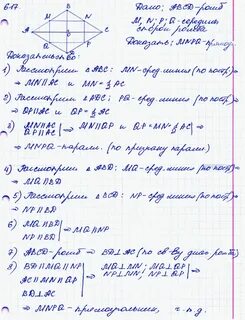 617
B
M
N
A
C
Q
P
D
Дано: ABCD-ромб
M, N, P, Q-середины
сторон ромба
Доказать: MNPQ-прямоуг.
Доказательство:
1) Рассмотрим △ABC: MN-сред. линия (по постр.)
⇒ MN||AC и MN=½AC
2) Рассмотрим △ADC: PQ-сред. линия (по постр.)
⇒ QP||AC и QP=½AC
3) MN||AC
QP||AC ⇒ MN||QP и QP=MN=½AC
⇒ MNPQ-паралл. (по признаку паралл.)
4) Рассмотрим △ABD: MQ-сред. линия (по постр.)
⇒ MQ||BD
5) Рассмотрим △BCD: NP-сред. линия (по постр.)
⇒ NP||BD
6) MQ||BD
NP||BD ⇒ MQ||NP
7) ABCD-ромб ⇒ BD⊥AC (по св-ву диаг. ромба)
8) BD||MQ||NP
MQ⊥MN; MQ⊥QP
AC||MN||QP ⇒ NP⊥MN; NP⊥QP
BD⊥AC
⇒ MNPQ-прямоугольник, ч.т.д.